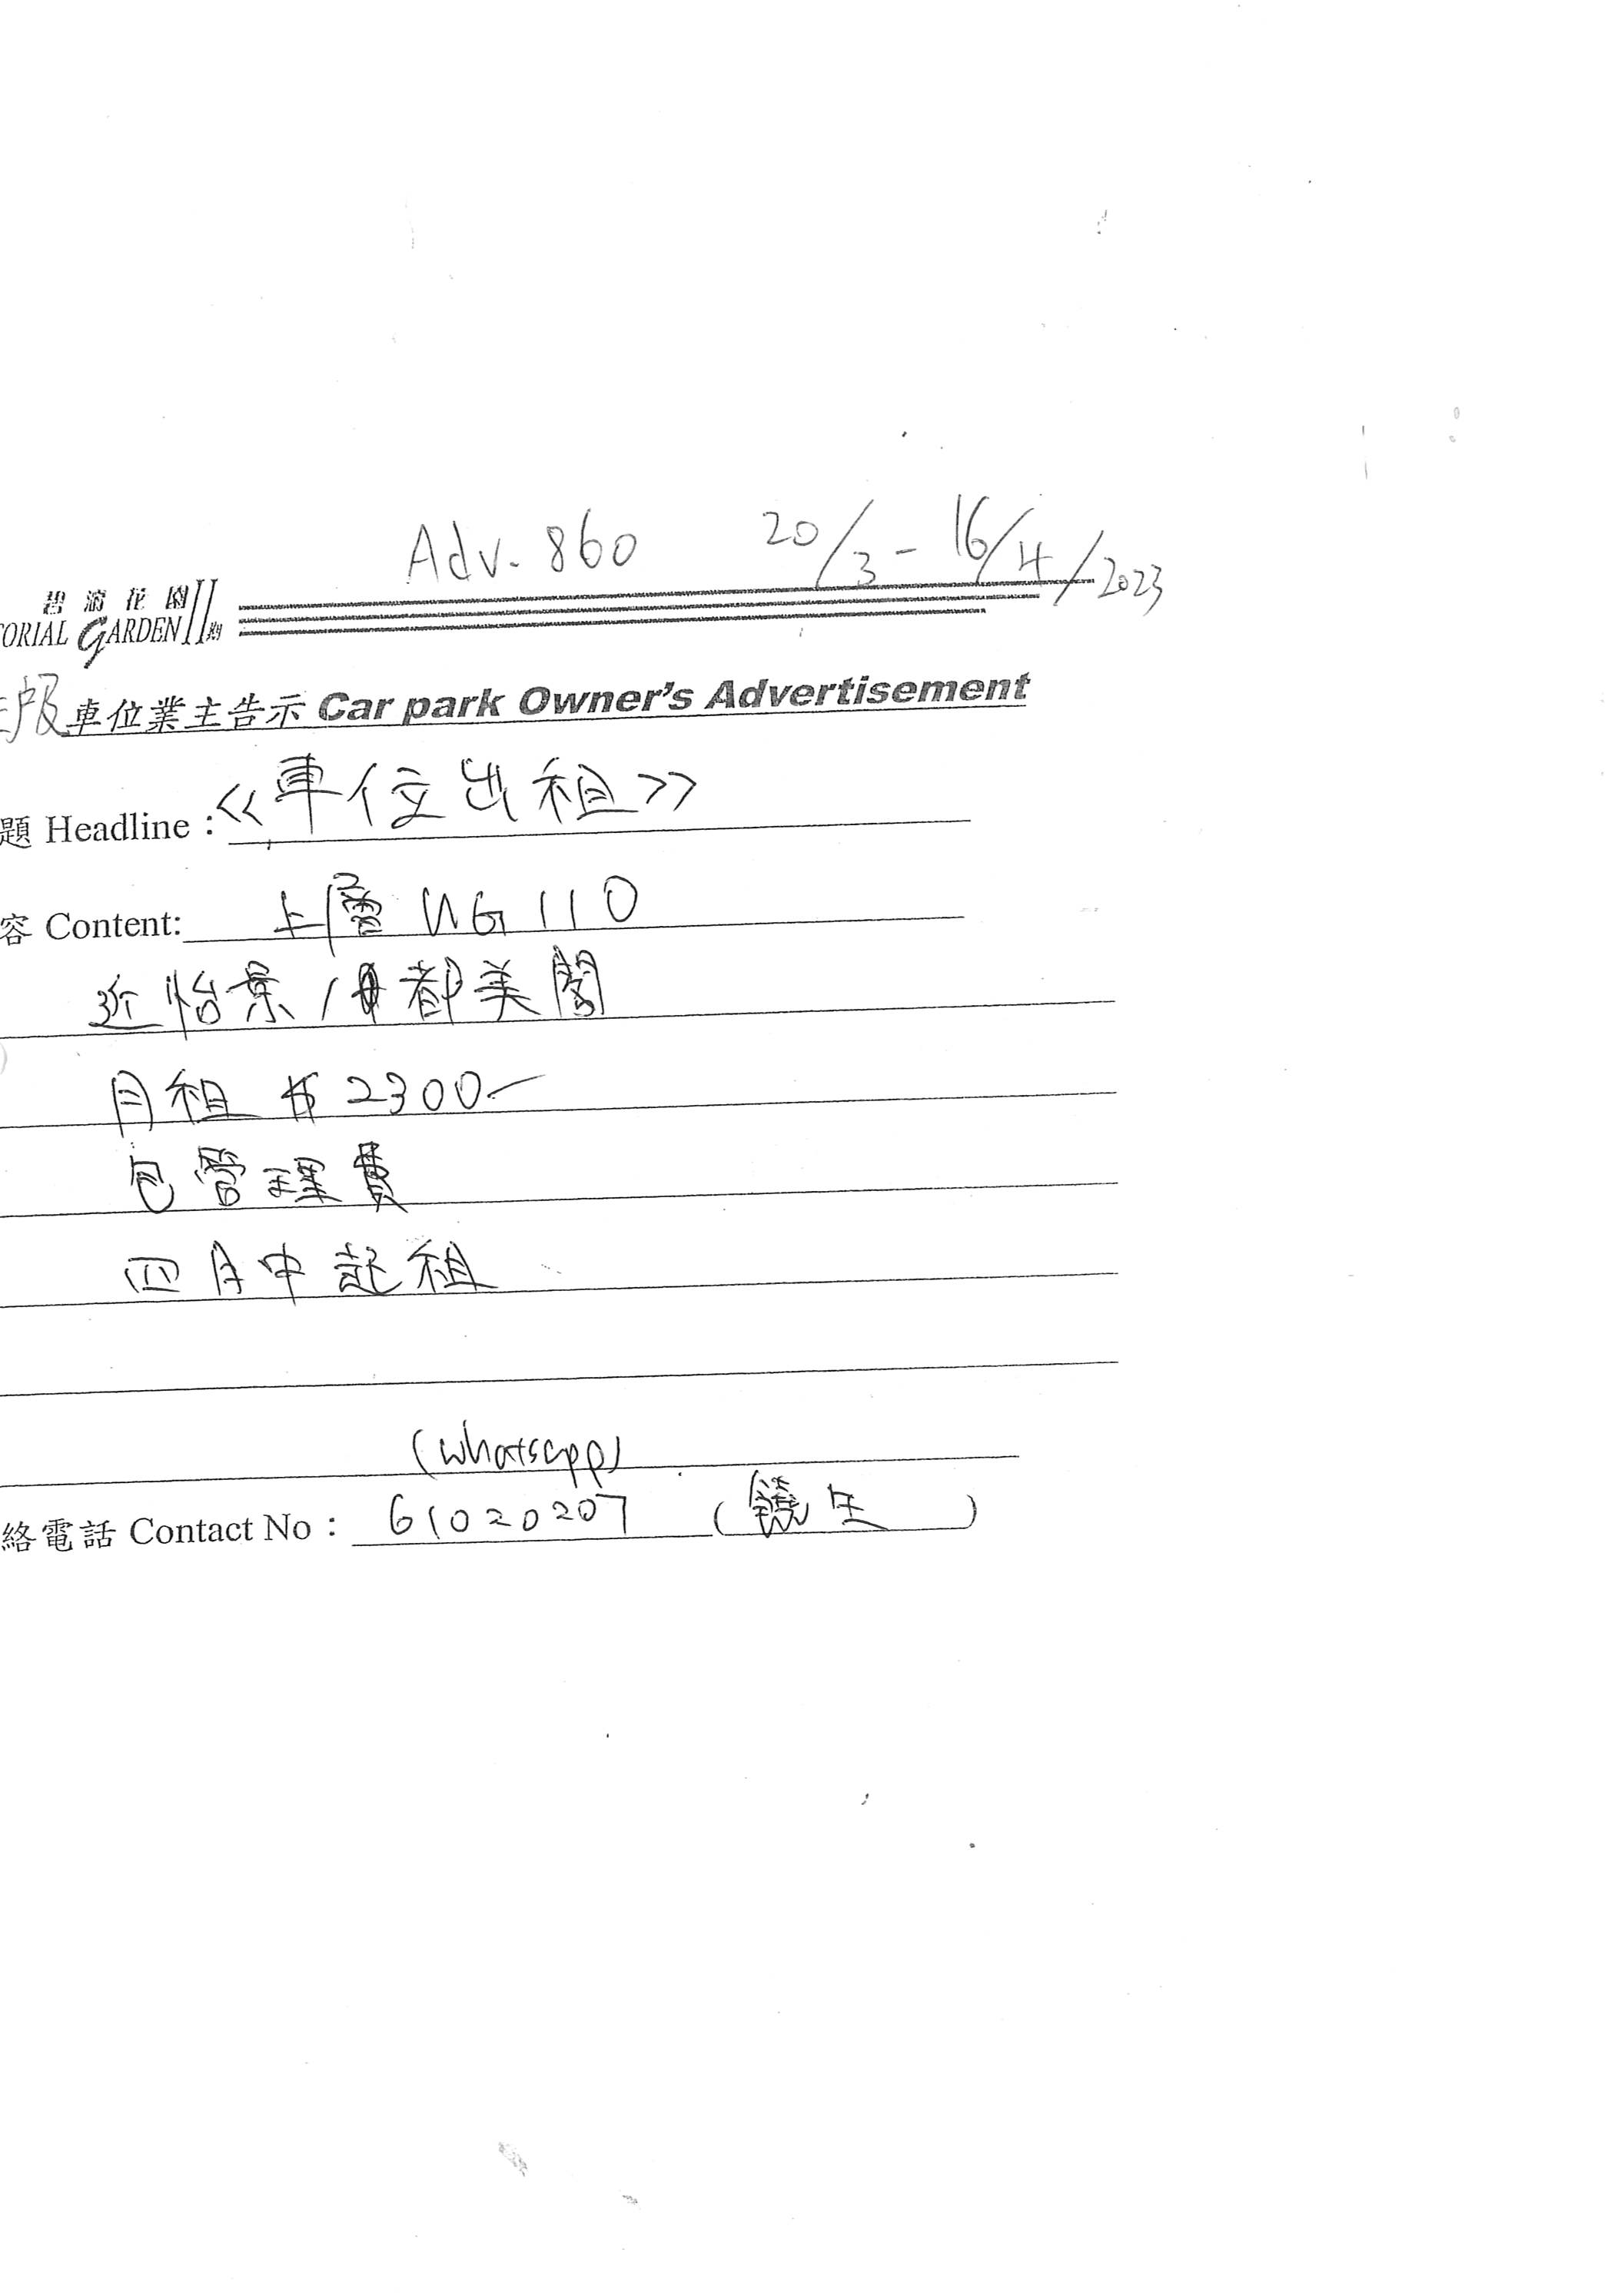 Adv. 860 20/3 - 16/4/2023
碧濤花園II期
TORIAL GARDEN
車位業主告示 Car park Owner's Advertisement
題 Headline : <<車位出租>>
容 Content: 上層 UG 110
近怡景/海都美閣
月租 $2300-
包管理費
四月中起租
(whatsapp)
絡電話 Contact No : 61020207 (饒生 )